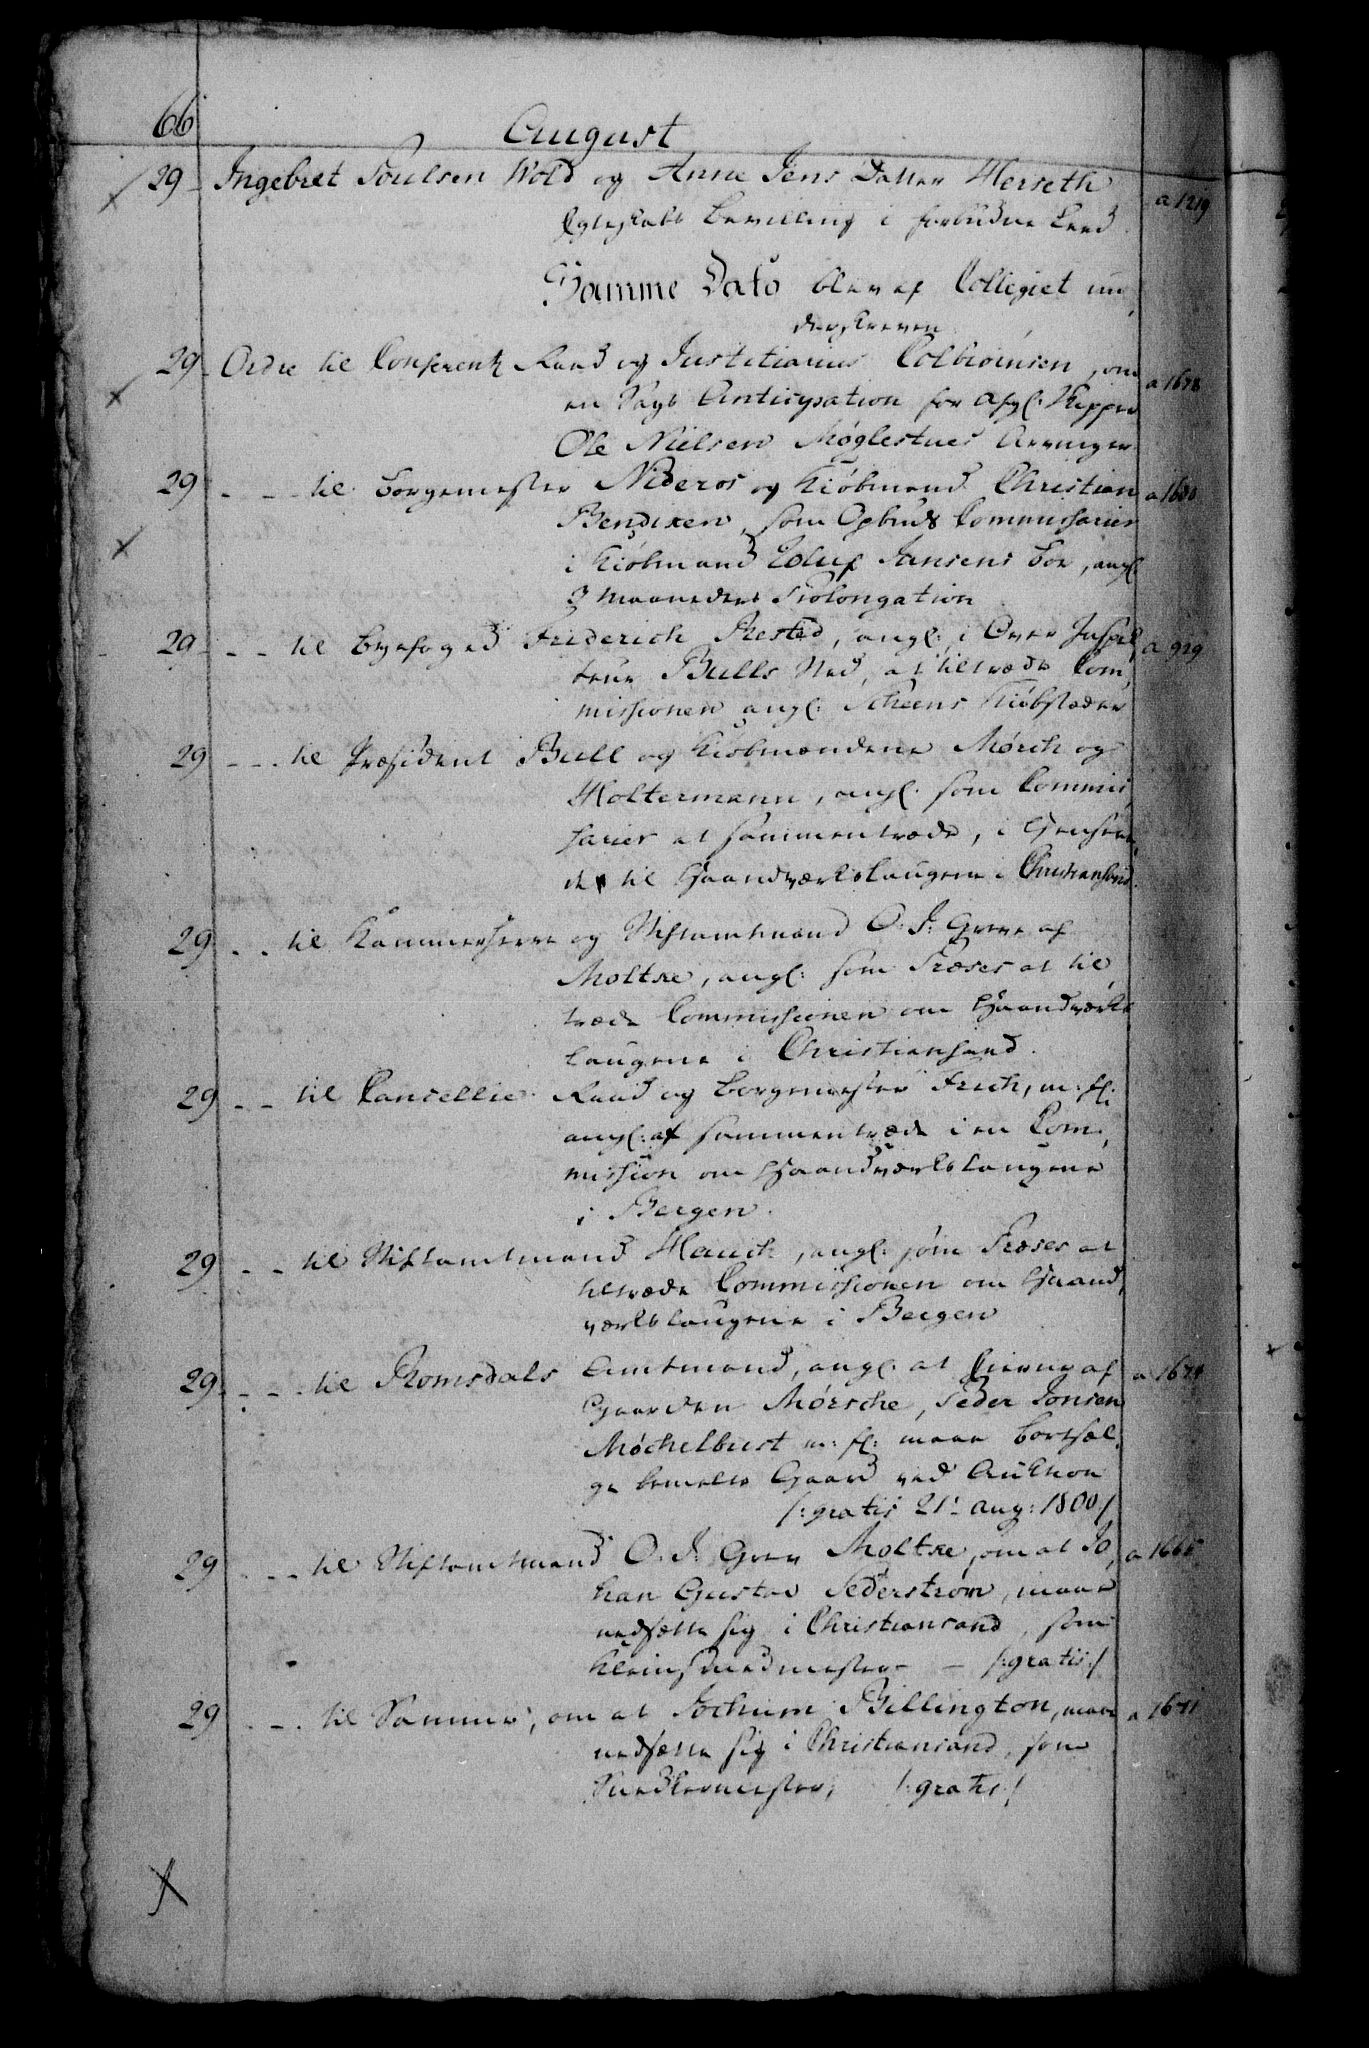 66
August
29 - Ingebret Poulsen Wold og Anne Jens Datter Herseth a 1219
Egteskabs Bevilling i forbudne Leed.
Samme Dato blev af Collegiet un
derskreven
29 - Ordre til Conferentz Raad og Justitiarius Colbiørnsen, om a 1678
en Sags Anticipation for afg: Skipper
Ole Nielsen Møglestues Arvinger
29 - - - til Borgemester Nideros og Kiøbmand Christian a 1680
Bendixen, som Opbuds Commissarier
i Kiøbmand Eduf Jansens Boe, angl:
3 Maaneders Prolongation
29 - - - til Byefoged Friderich Rested, angl: i Over Inspec a 929
teur Bulls Sted, at tiltræde Com,
missionen angl: Scheens Kiøbstæder
29 - - - til Præsident Bull og Kiøbmændene Mørch og
Holtermann, angl: som Commis,
sarier at sammentræde, i Henseen,
de til Haandværkslaugene i Christiansand.
29 - - til Kammerherre og Stiftamtmand O: J: Greve af
Moltke, angl: som Præses at til,
træde Commissionen om Haandværks
laugene i Christiansand.
29 - - til Cancellie Raad og Borgemester Frich, m: fl:
angl: at sammentræde i en Com,
mission om Haandværkslaugene
i Bergen.
29 - - til Stiftamtmand Hauch, angl: som Præses at
tiltræde Commissionen om Haand,
værkslaugene i Bergen
29 - - - til Romsdals Amtmand, angl: at Eierne af a 1674
Gaarden Mørsche, Peder Jonsen
Møchelbust m: fl: maae bortsæl,
ge bemelte Gaard ved Auction
/: gratis 21: aug: 1800 /
29 - - - til Stiftamtmand O. J: Grev Moltke, om at Jo, a 1665
han Gustav Sederstrøm, maae
nedsætte sig i Christiansand, som
Kleinsmedmester - /: gratis :/
29 - - - til Samme, om at Jochum Billington, maae a 1671
nedsætte sig i Christiansand, som
Snedkermester, /: gratis :/